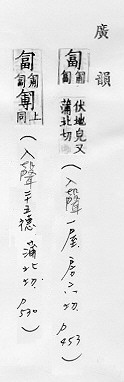 廣韻
匐 匍匐伏地皃又蒲北切 (入聲 一屋 房六切 P453)
匐 匍匐 同上 (入聲 二五德 蒲北切 P530)